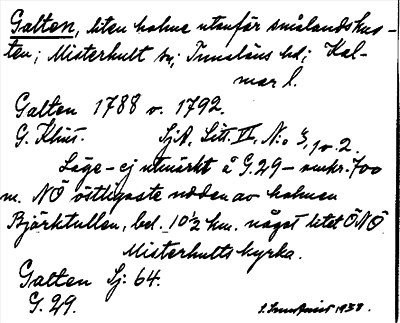 Galten, liten holme utanför smålandskus-
ten; Misterhult sn; Tunaläns hd; Kal-
mar l.
Galten 1788 o. 1792.
G. Klint. SjA, Litt. VI, N:o
Läge - ej utmärkt å G.29 - omkr. 700
m. NÖ östligaste udden av holmen
Björktullen, bel. 10½ km. något litet ÖNÖ
Misterhults kyrka.
Galten Sj: 64.
G. 29. 1938.